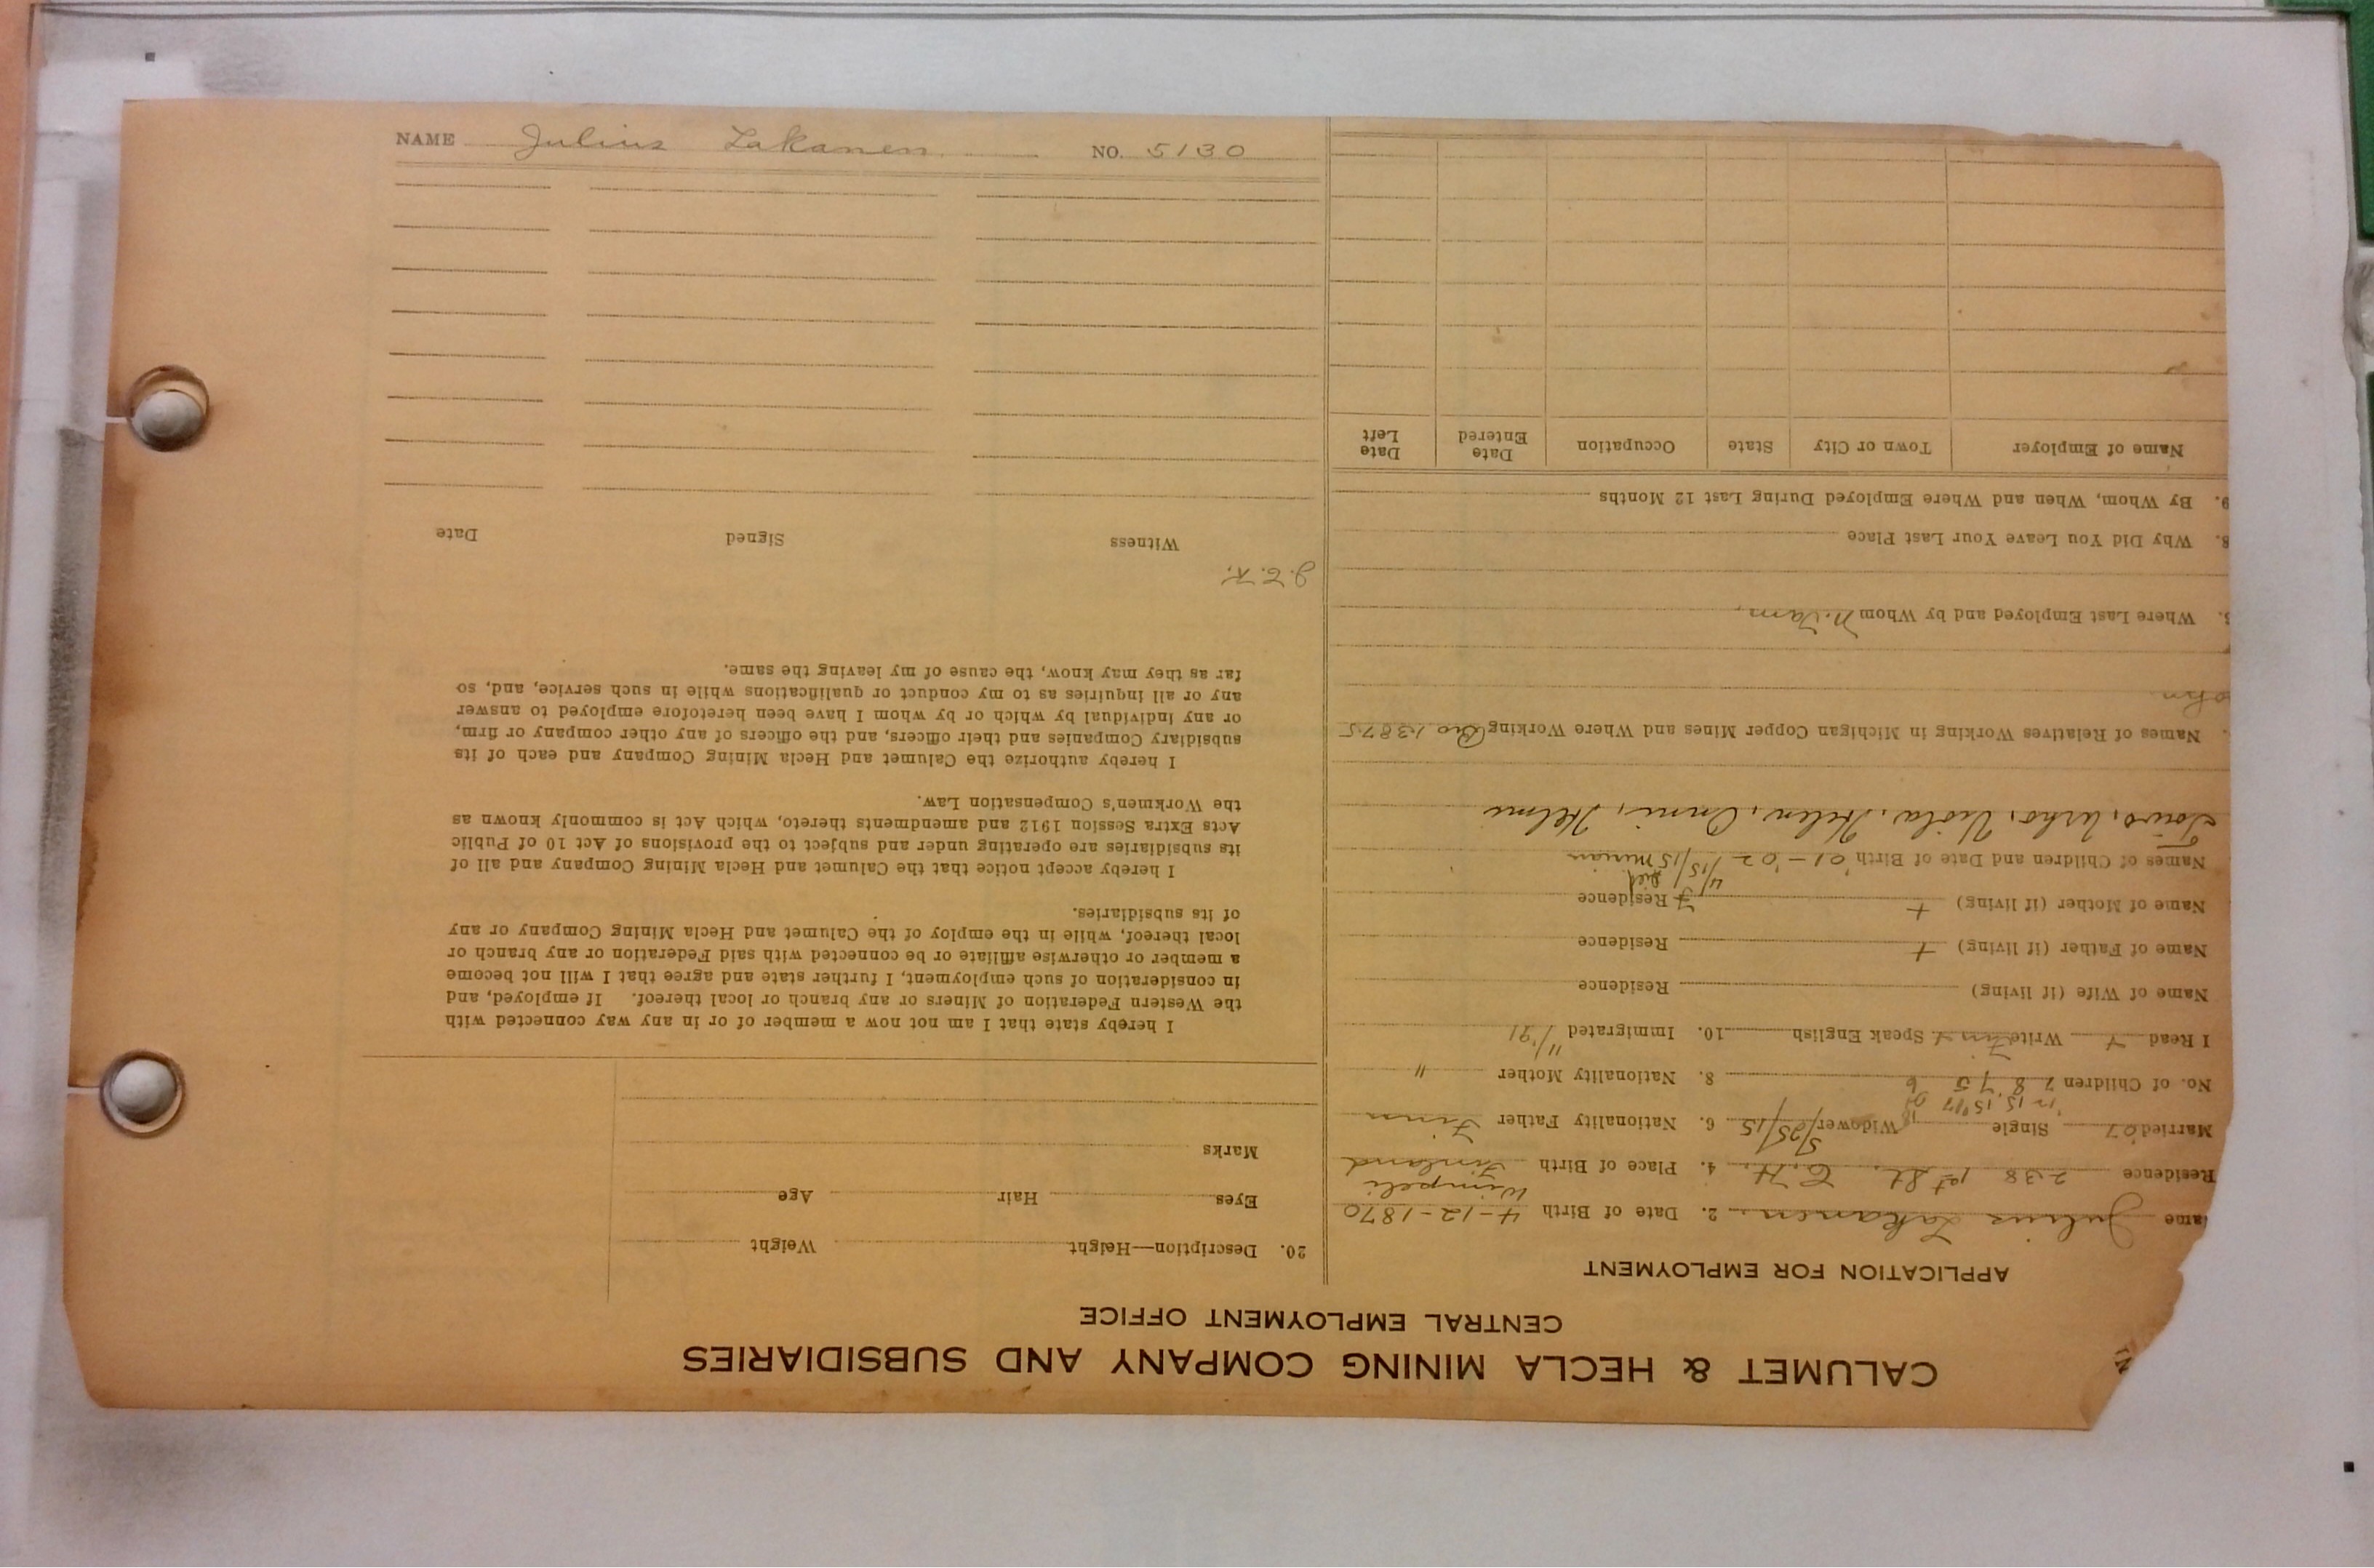 CALUMET & HECLA MINING COMPANY AND SUBSIDIARIES
CENTRAL EMPLOYMENT OFFICE
APPLICATION FOR EMPLOYMENT
ame Julius Lakanen. 2. Date of Birth 4-12-1870
Wimpeli
Residence 238 1st St. C.H. 4. Place of Birth Finland
Married '07 Single Widower 5/25/15 6. Nationality Father Finn
No. of Children 7 8 7 5 6 8. Nationality Mother "
I Read + Write Finn + Speak English 10. Immigrated 11/'91
Name of Wife (if living) Residence
Name of Father (if living) + Residence
Name of Mother (if living) + Residence
4/15/ Died
Names of Children and Date of Birth '01-'02- /15/15 Mirian
Toivo, Urho, Viola, Helen, Onni, Helmi
Names of Relatives Working in Michigan Copper Mines and Where Working Bro 13875
ohn
Where Last Employed and by Whom N. Tam.
8. Why Did You Leave Your Last Place
9. By Whom, When and Where Employed During Last 12 Months
Name of Employer Town or City State Occupation Date Entered Date Left
20. Description—Height Weight
Eyes Hair Age
Marks
I hereby state that I am not now a member of or in any way connected with
the Western Federation of Miners or any branch or local thereof. If employed, and
in consideration of such employment, I further state and agree that I will not become
a member or otherwise affiliate or be connected with said Federation or any branch or
local thereof, while in the employ of the Calumet and Hecla Mining Company or any
of its subsidiaries.
I hereby accept notice that the Calumet and Hecla Mining Company and all of
its subsidiaries are operating under and subject to the provisions of Act 10 of Public
Acts Extra Session 1912 and amendments thereto, which Act is commonly known as
the Workmen's Compensation Law.
I hereby authorize the Calumet and Hecla Mining Company and each of its
subsidiary Companies and their officers, and the officers of any other company or firm,
or any individual by which or by whom I have been heretofore employed to answer
any or all inquiries as to my conduct or qualifications while in such service, and, so
far as they may know, the cause of my leaving the same.
J.E.K.
Witness Signed Date
NAME Julius Lakanen NO. 5130